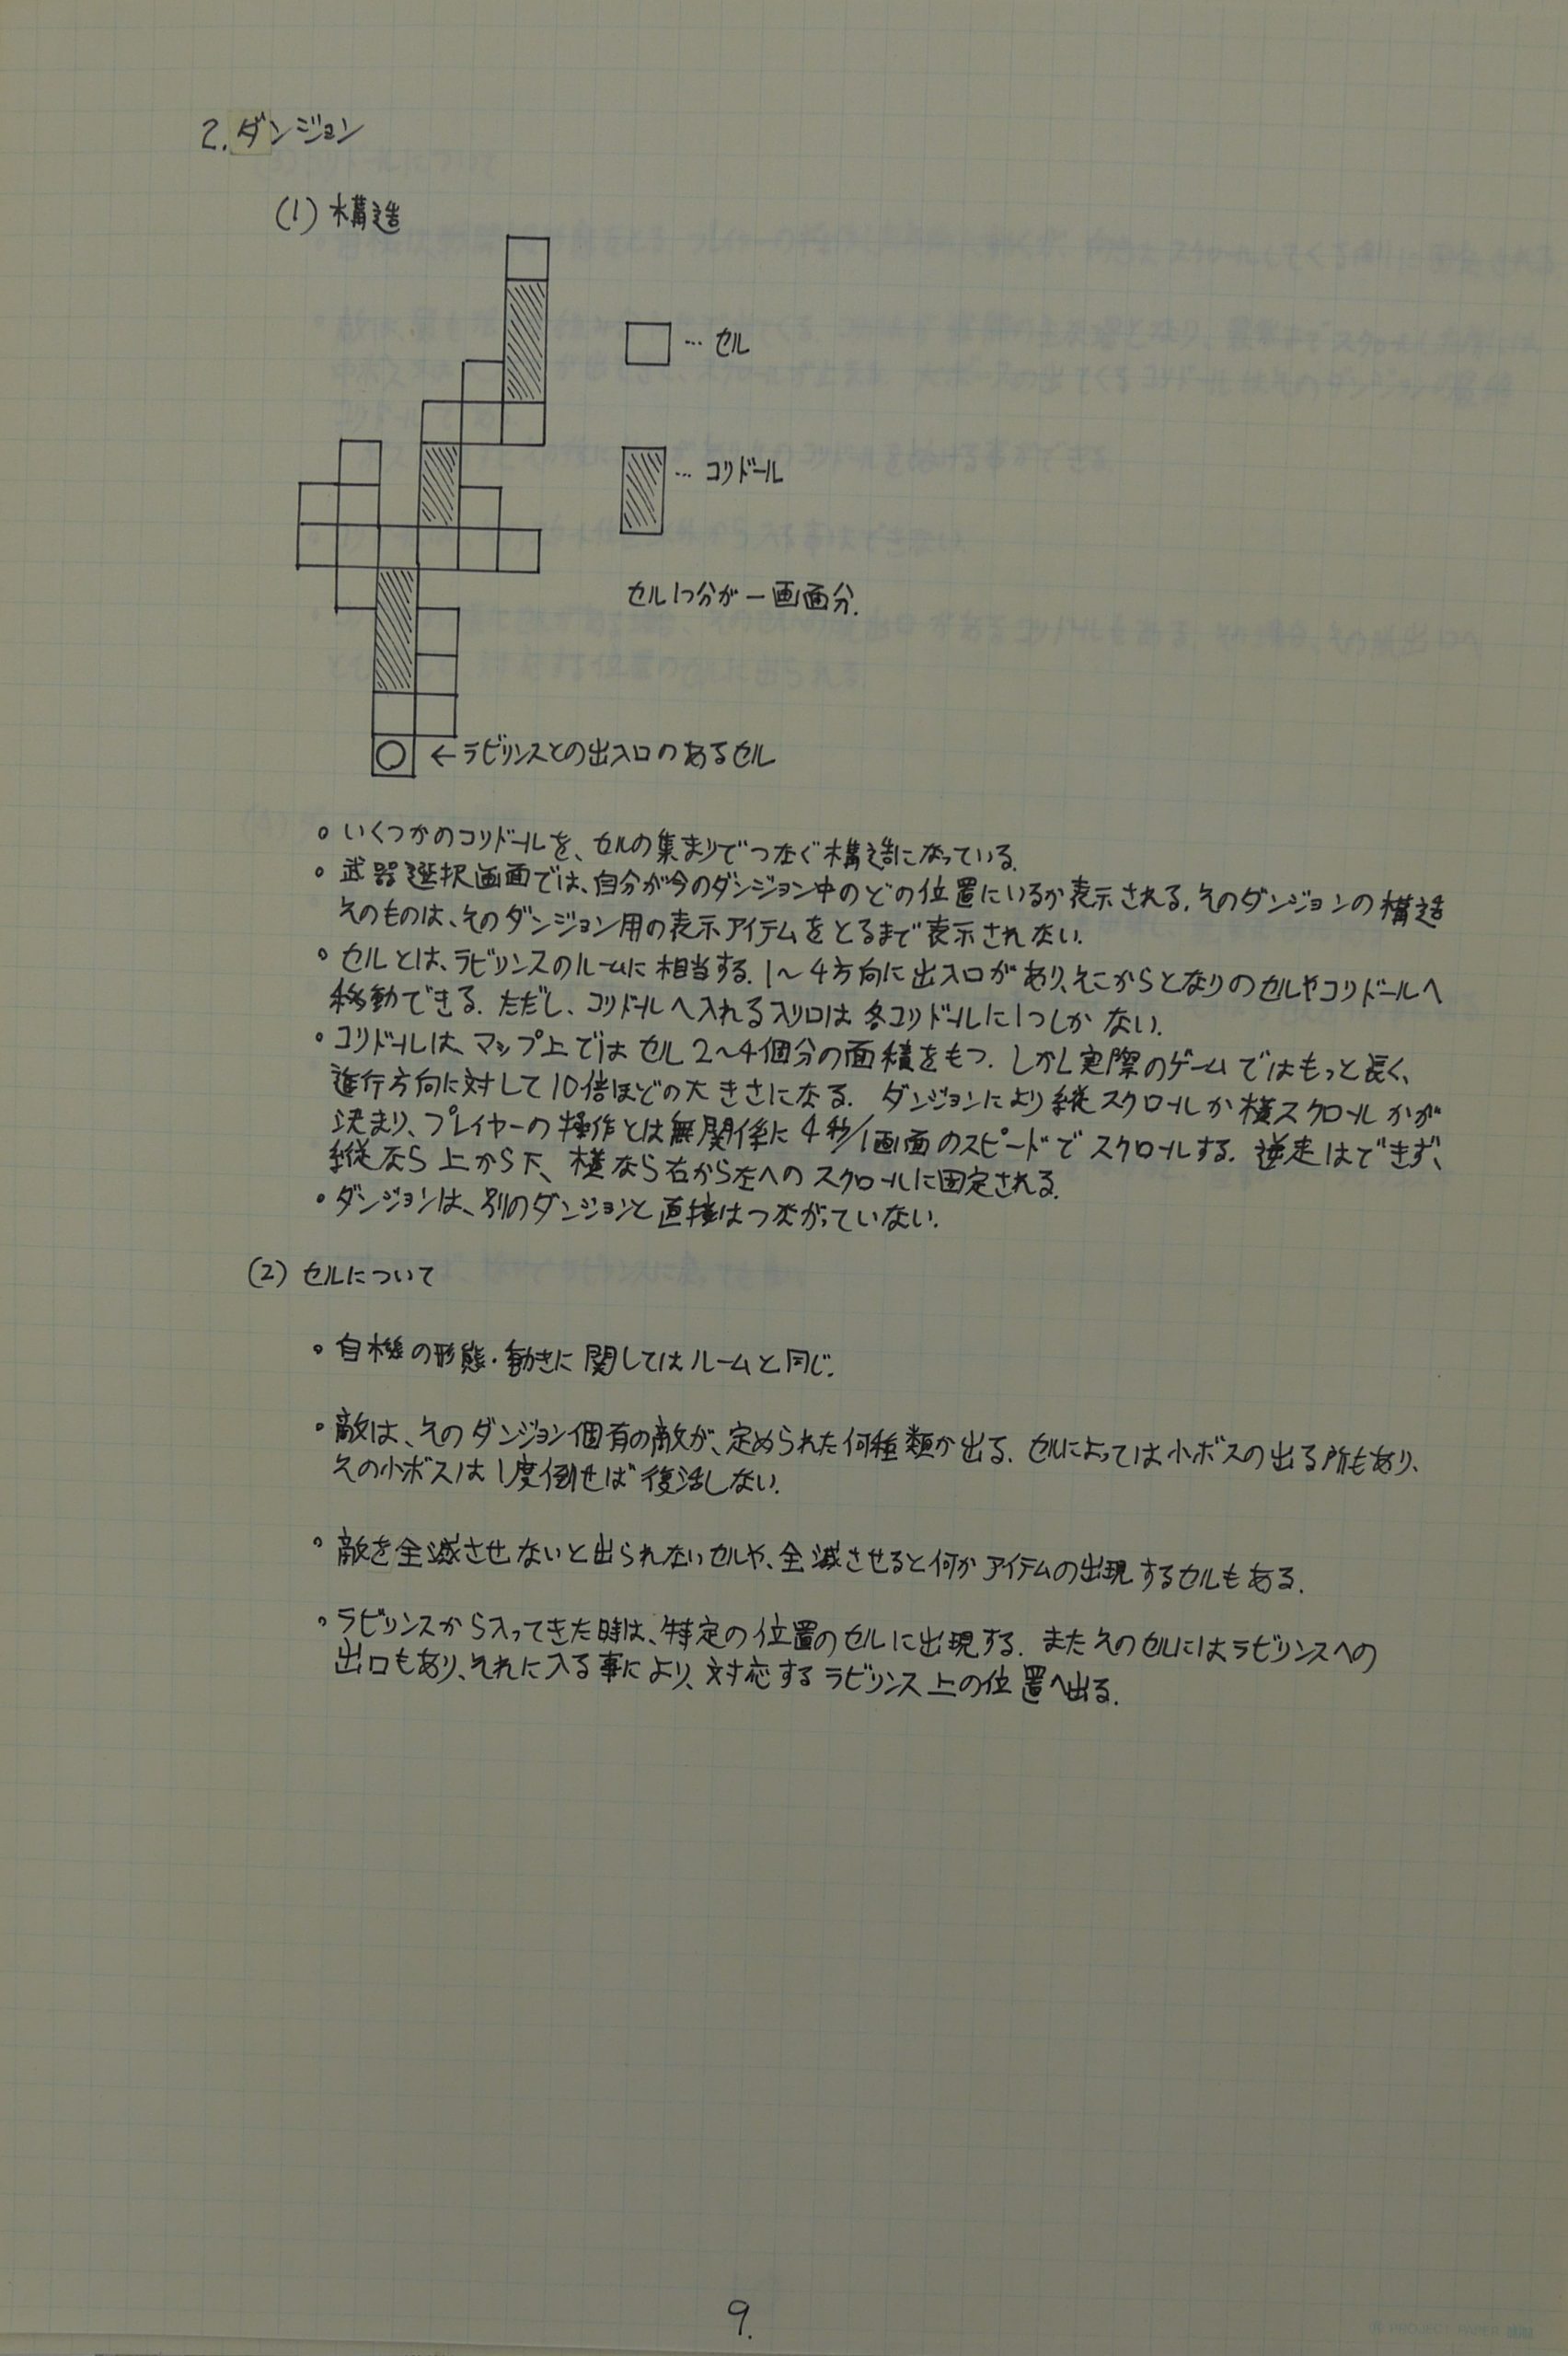 2. ダンジョン
(1) 構造
□ … セル
… コリドール
セル1つ分が一画面分.
○ ←ラビリンスとの出入口のあるセル
。いくつかのコリドールを、セルの集まりでつなぐ構造になっている.
。武器選択画面では、自分が今のダンジョン中のどの位置にいるか表示される. そのダンジョンの構造
そのものは、そのダンジョン用の表示アイテムをとるまで表示されない.
。セルとは、ラビリンスのルームに相当する. 1〜4方向に出入口があり、そこからとなりのセルやコリドールへ
移動できる. ただし、コリドールへ入れる入り口は各コリドールに1つしかない.
・コリドールは、マップ上ではセル2〜4個分の面積をもつ. しかし実際のゲームではもっと長く、
進行方向に対して10倍ほどの大きさになる. ダンジョンにより縦スクロールか横スクロールかが
決まり、プレイヤーの操作とは無関係に4秒/1画面のスピードでスクロールする. 逆走はできず、
縦なら上から下、横なら右から左へのスクロールに固定される.
・ダンジョンは、別のダンジョンと直接はつながっていない.
(2) セルについて
。自機の形態・動きに関してはルームと同じ.
。敵は、そのダンジョン個有の敵が、定められた何種類か出る. セルによっては小ボスの出る所もあり、
その小ボスは1度倒せば復活しない.
。敵を全滅させないと出られないセルや、全滅させると何かアイテムの出現するセルもある.
。ラビリンスから入ってきた時は、特定の位置のセルに出現する. またそのセルにはラビリンスへの
出口もあり、それに入る事により、対応するラビリンス上の位置へ出る.
9.